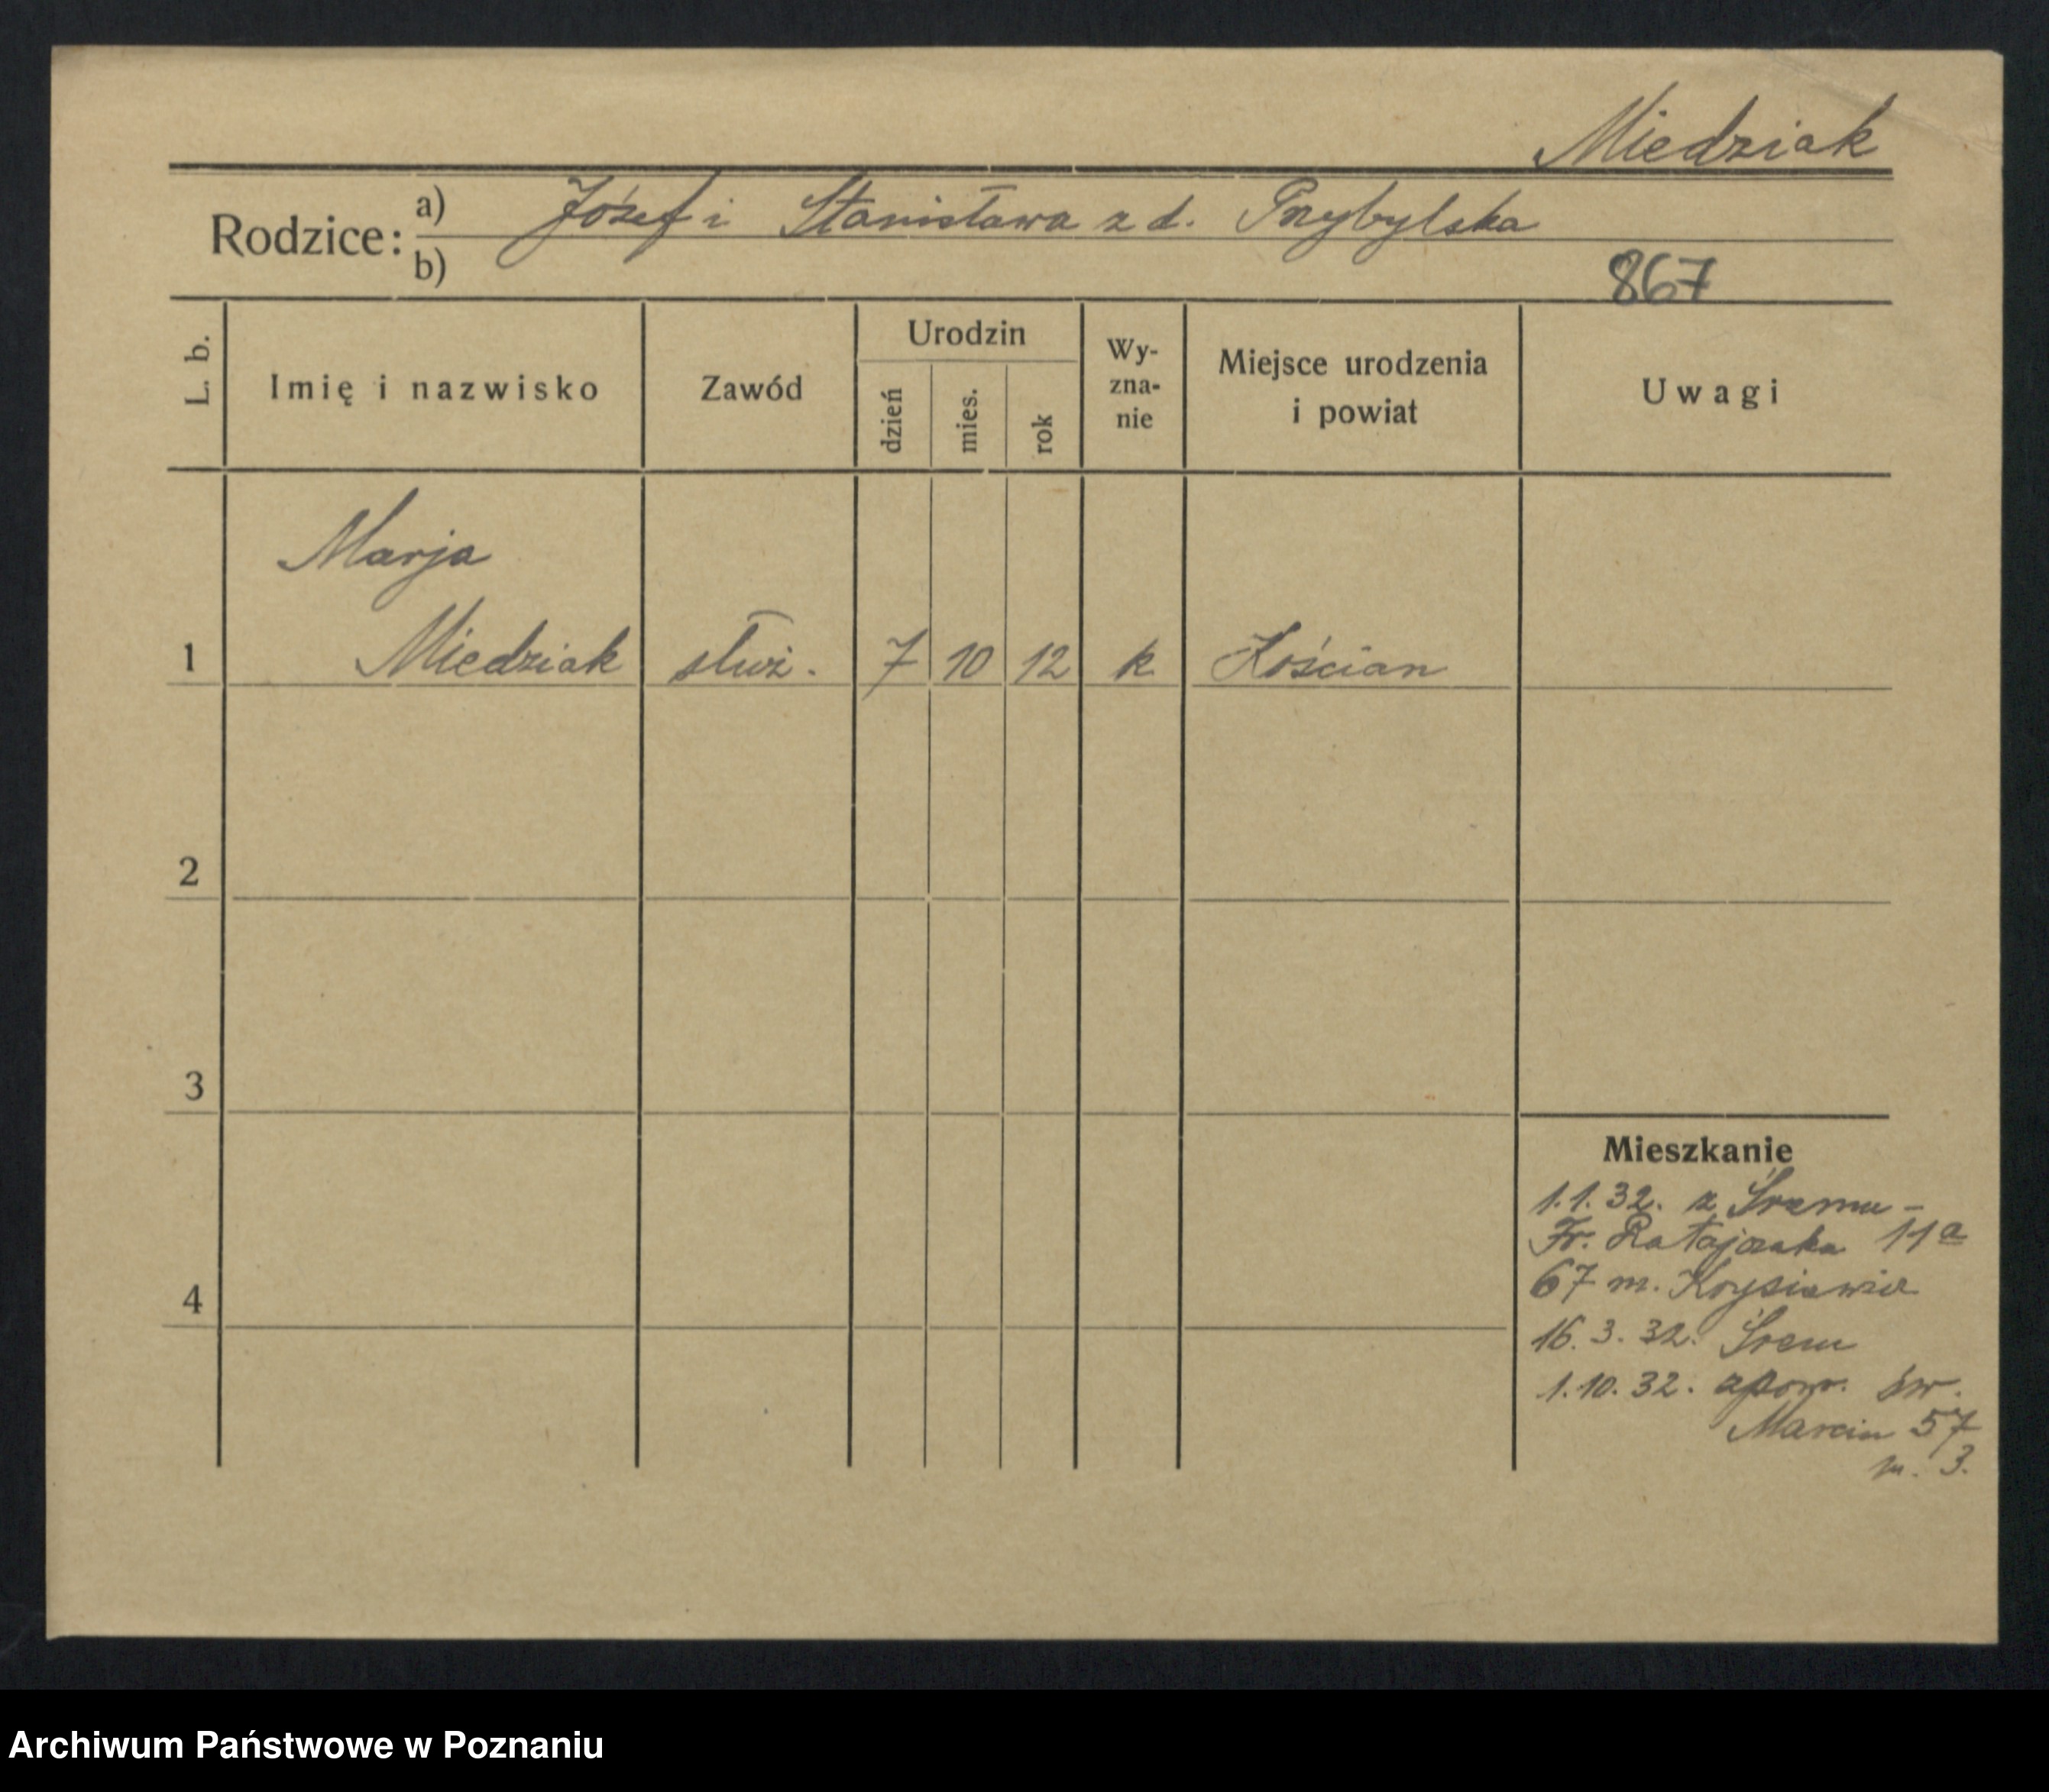 Miedziak
Rodzice: a) Józef i Stanisława z d. Przybylska
b)
867
L. b.
Imię i nazwisko
Zawód
Urodzin
dzień
mies.
rok
Wy-
zna-
nie
Miejsce urodzenia
i powiat
Uwagi
Marja
1 Miedziak służ. 7 10 12 k Kościan
2
3
4
Mieszkanie
1.1.32. z Śremu -
Fr. Ratajczaka 11a
67 m.
16.3.32. Śrem
1.10.32. zpow. św.
Marcin 57
m. 3.
Archiwum Państwowe w Poznaniu